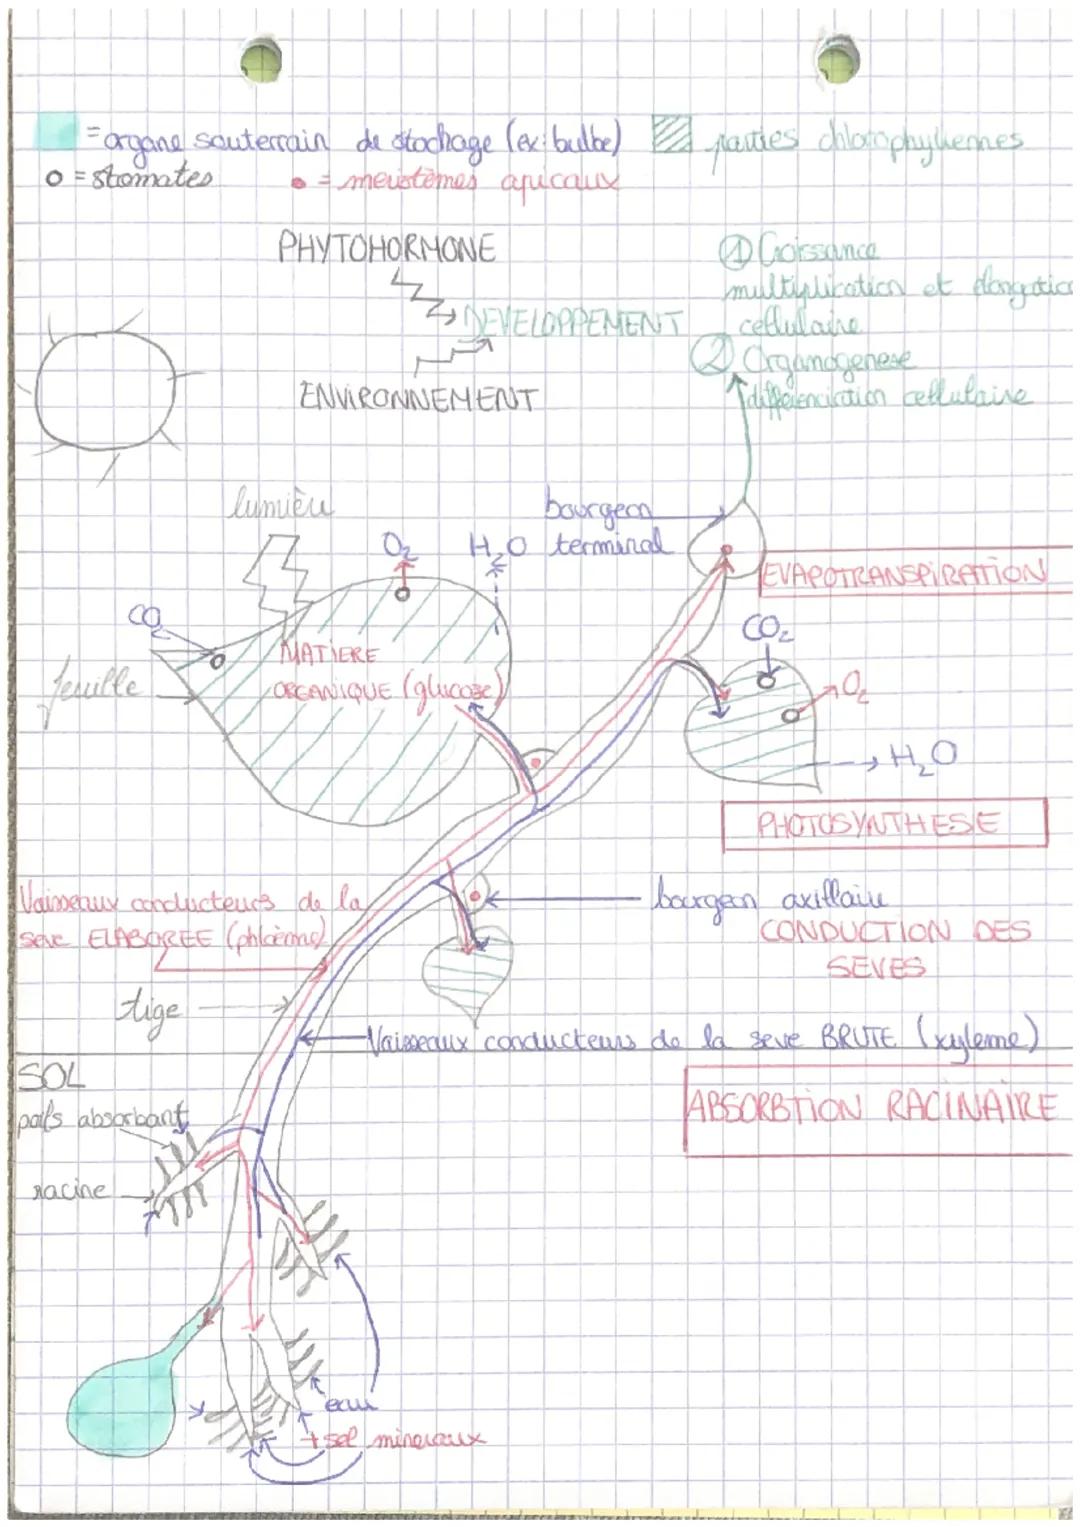 = organe souterrain de stockage (ex: bulbe)
parties chlorophylliennes
o = stomates
= meristèmes apicaux
PHYTOHORMONE
DEVELOPPEMENT
ENVIRONNEMENT
① Croissance
multiplication et élongation
cellulaire
② Organogenese
différenciation cellulaire
lumière
bourgeon
terminal
O₂
H₂O
CO₂
EVAPOTRANSPIRATION
MATIERE
ORGANIQUE (glucose)
feuille
CO₂
O₂
H₂O
PHOTOSYNTHESE
Vaisseaux conducteurs de la
seve ELABOREE (phloème)
bourgeon axillaire
CONDUCTION DES
SEVES
tige
Vaisseaux conducteurs de la seve BRUTE (xyleme)
SOL
poils absorbant
ABSORBTION RACINAIRE
racine
eau
+ sel mineraux